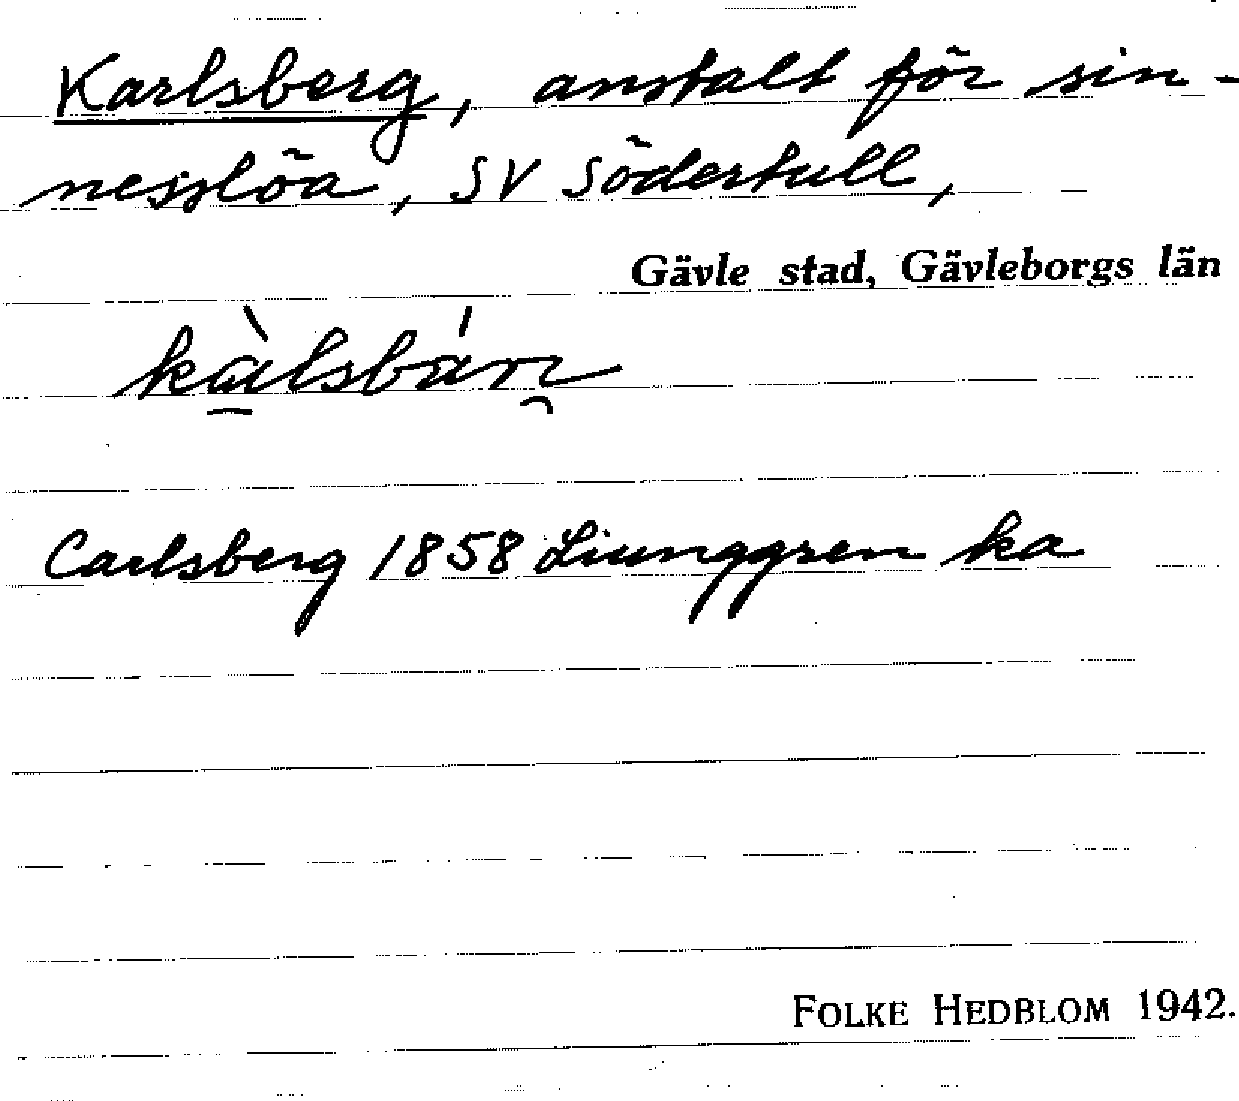 Karlsberg, anstalt för sin-
nesslöa, SV Södertull,
Gävle stad, Gävleborgs län
kàlsbár̯
Carlsberg 1858 Liunggren ka
FOLKE HEDBLOM 1942.